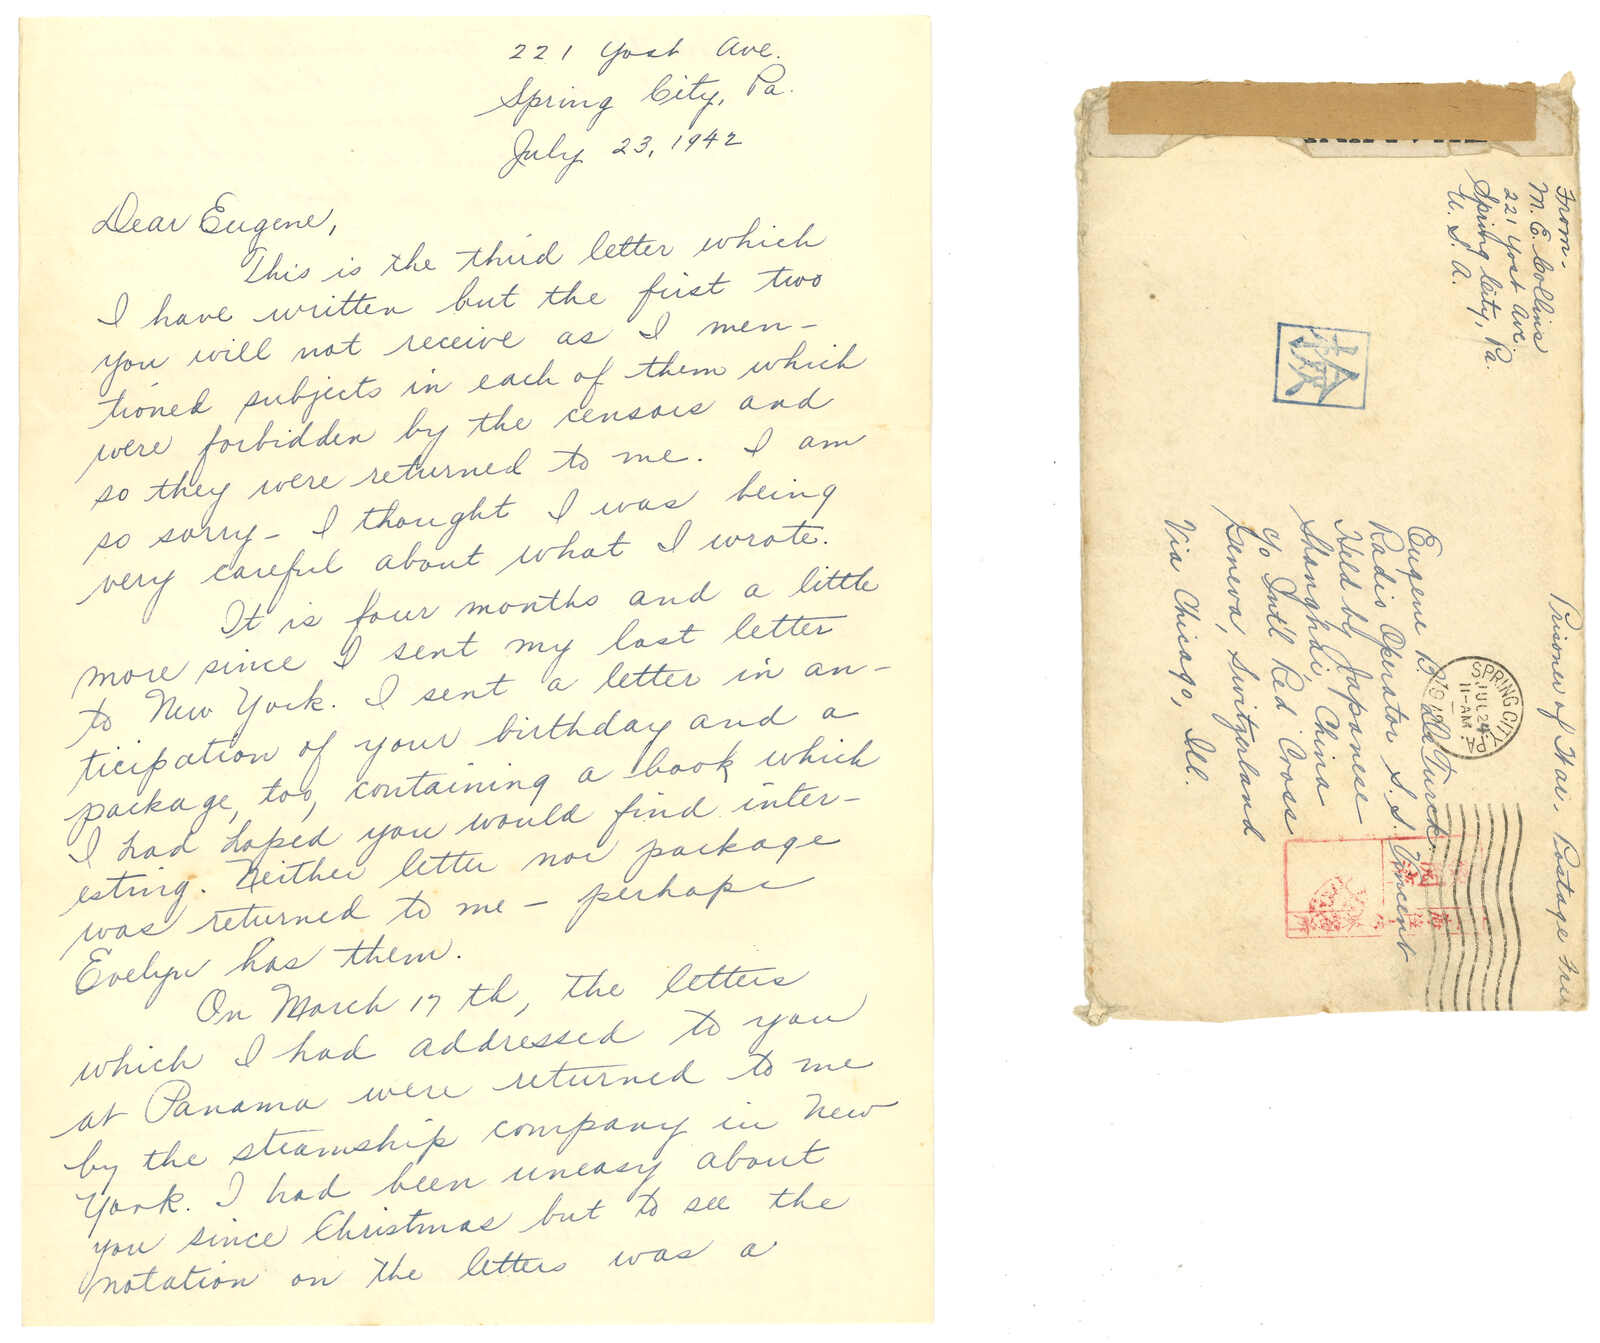 221 Yost Ave.
Spring City, Pa.
July 23, 1942
Dear Eugene,
This is the third letter which
I have written but the first two
you will not receive as I men-
tioned subjects in each of them which
were forbidden by the censors and
so they were returned to me. I am
so sorry - I thought I was being
very careful about what I wrote.
It is four months and a little
more since I sent my last letter
to New York. I sent a letter in an-
ticipation of your birthday and a
package, too, containing a book which
I had hoped you would find inter-
esting. Neither letter nor package
was returned to me - perhaps
Evelyn has them.
On March 17 th, the letters
which I had addressed to you
at Panama were returned to me
by the steamship company in New
York. I had been uneasy about
you since Christmas but to see the
notation on the letters was a
From -
M. E. Collins
221 Yost Ave.
Spring City, Pa.
U. S. A.
檢
Prisoner of War. Postage Free
SPRING CITY
JUL 24
11-AM
PA.
Eugene B. De Turck
Radio Operator S. S. Vincent
Held by Japanese
Shanghai, China
c/o Int'l Red Cross
Geneva, Switzerland
Via Chicago, Ill.